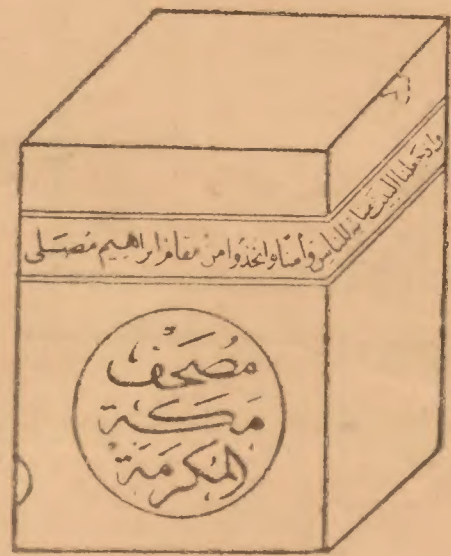 وإذ جعلنا البيت مثابة للناس وأمنا واتخذوا من مقام إبراهيم مصلى
مصحف
مكة
المكرمة